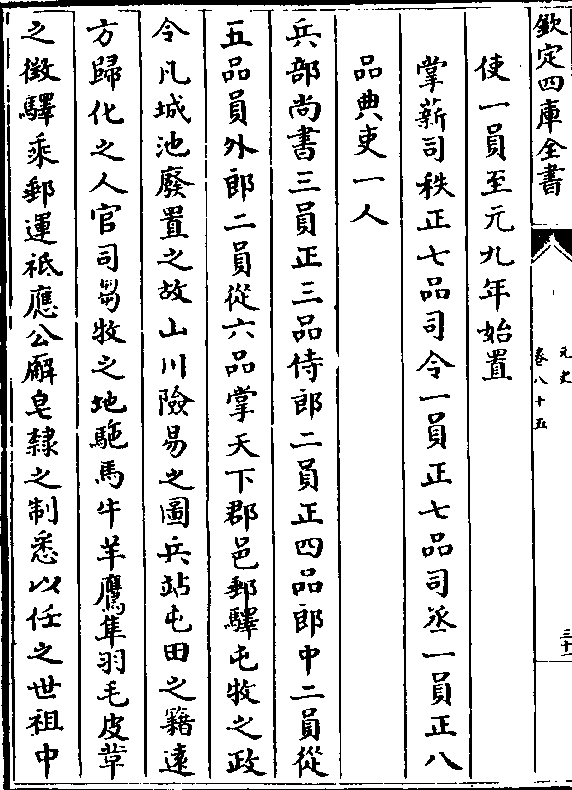 欽定四庫全書
元史
卷八十五
三十一
使一員至元九年始置
掌薪司秩正七品司令一員正七品司丞二員正八
品典吏一人
兵部尚書三員正三品侍郎二員正四品郎中二員從
五品員外郎二員從六品掌天下郡邑郵驛屯牧之政
令凡城池廢置之故山川險易之圖兵站屯田之籍遠
方歸化之人官司芻牧之地駞馬牛羊鷹隼羽毛皮草
之徴驛乘郵運祗應公廨皂隸之制悉以任之世祖中